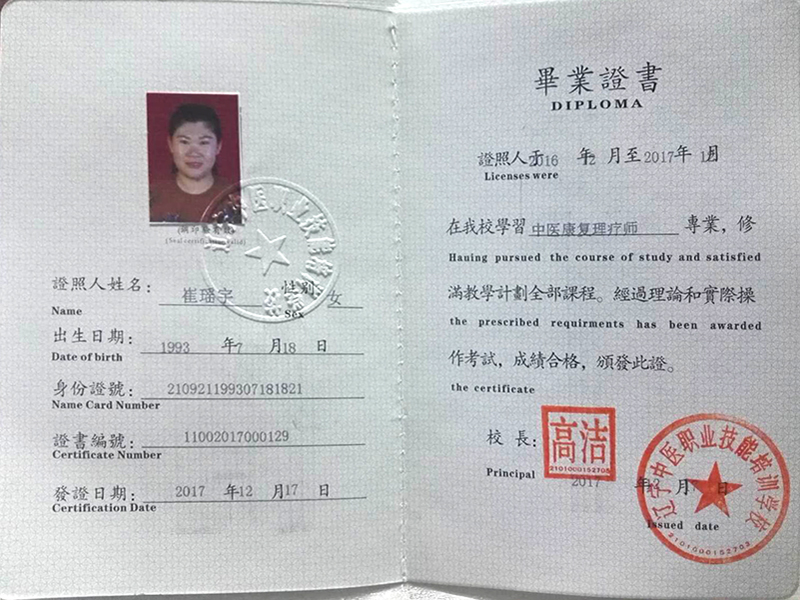 (鋼印騐證有效)
(Seal certification valid)
證照人姓名: 崔瑶宇 性别 女
Name Sex
出生日期: 1993 年 7 月 18 日
Date of birth
身份證號: 210921199307181821
Name Card Number
證書編號: 11002017000129
Certificate Number
發證日期: 2017 年 12 月 17 日
Certification Date
畢業證書
DIPLOMA
證照人于2016 年 12 月至2017年 12月
Licenses were
在我校學習 中医康复理疗师 專業，修
Hauing pursued the course of study and satisfied
滿教學計劃全部課程。經過理論和實際操
the prescribed requirments has been awarded
作考試，成績合格，頒發此證。
the certificate
校長:
高洁
2101000152705
Principal
2017 年 12 月 日
Issued date
辽宁中医职业技能培训学校
2101000152702